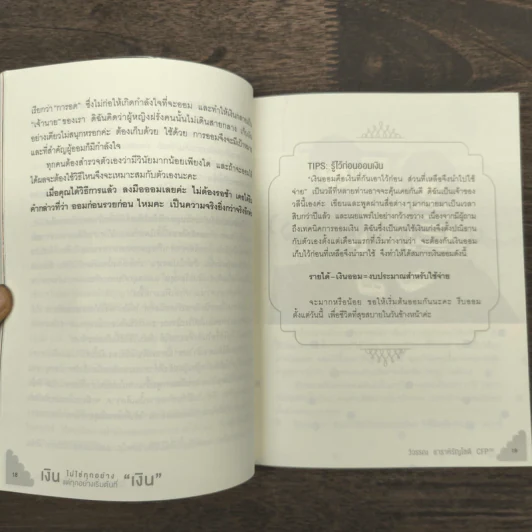 เรียกว่า “การอด” ซึ่งไม่ก่อให้เกิดกำลังใจที่จะออม และทำให้เงินกลายเป็น
“เจ้านาย”ของเรา ดิฉันคิดว่าผู้หญิงฝรั่งคนนั้นไม่เดินสายกลาง
อย่างเดียวไม่สนุกหรอกค่ะ ต้องเก็บด้วย ใช้ด้วย การออมจึงจะมีเป้า
และที่สำคัญผู้ออมก็มีกำลังใจ
ทุกคนต้องสำรวจตัวเองว่ามีวินัยมากน้อยเพียงใด และถ้าจะออม
ได้ผลจะต้องใช้วิธีไหนจึงจะเหมาะสมกับตัวเองนะคะ
เมื่อคุณได้วิธีการแล้ว ลงมือออมเลยค่ะ ไม่ต้องรอช้า เคยได้ยิน
คำกล่าวที่ว่า ออมก่อนรวยก่อน ไหมคะ เป็นความจริงยิ่งกว่าจริงอีกค่ะ
18
เงิน ไม่ใช่ทุกอย่าง
แต่ทุกอย่างเริ่มต้นที่ “เงิน”
TIPS: รู้ไว้ก่อนออมเงิน
“เงินออมคือเงินที่กันเอาไว้ก่อน ส่วนที่เหลือจึงนำไปใช้
จ่าย” เป็นวิธีที่หลายท่านอาจจะคุ้นเคยกันดี ดิฉันเป็นเจ้าของ
วลีนี้เองค่ะ เขียนและพูดผ่านสื่อต่างๆ มากมายมาเป็นเวลา
สิบกว่าปีแล้ว และเผยแพร่ไปอย่างกว้างขวาง เนื่องจากมีผู้ถาม
ถึงเทคนิคการออมเงิน ดิฉันซึ่งเป็นคนใช้เงินเก่งจึงตั้งปณิธาน
กับตัวเองตั้งแต่เดือนแรกที่เริ่มทำงานว่า จะต้องกันเงินออม
เก็บไว้ก่อนที่เหลือจึงนำมาใช้ จึงทำให้ได้สมการเงินออมดังนี้
รายได้ – เงินออม = งบประมาณสำหรับใช้จ่าย
จะมากหรือน้อย ขอให้เริ่มต้นออมกันนะคะ รีบออม
ตั้งแต่วันนี้ เพื่อชีวิตที่สุขสบายในวันข้างหน้าค่ะ
วิวรรณ ธาราหิรัญโชติ CFP™
19